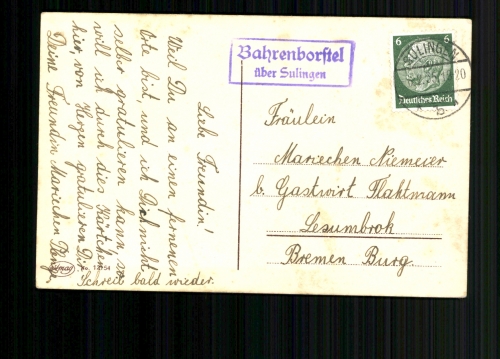 Liebe Freundin!
Weil Du an einen fernenen
Ote bist, und ich Dich nicht
selber gratulieren kann, so
will ich durch dies Kärtchen
hier, von Herzen gratulieren Dir
Deine Freundin Mariechen
Schreib bald wieder.
No. 12154
Bahrenborstel
über Sulingen
SULINGEN
20
b
6 6
Deutsches Reich
Fräulein
Mariechen Niemeier
b. Gastwirt Flahtmann
Lesumbrok
Bremen Burg.